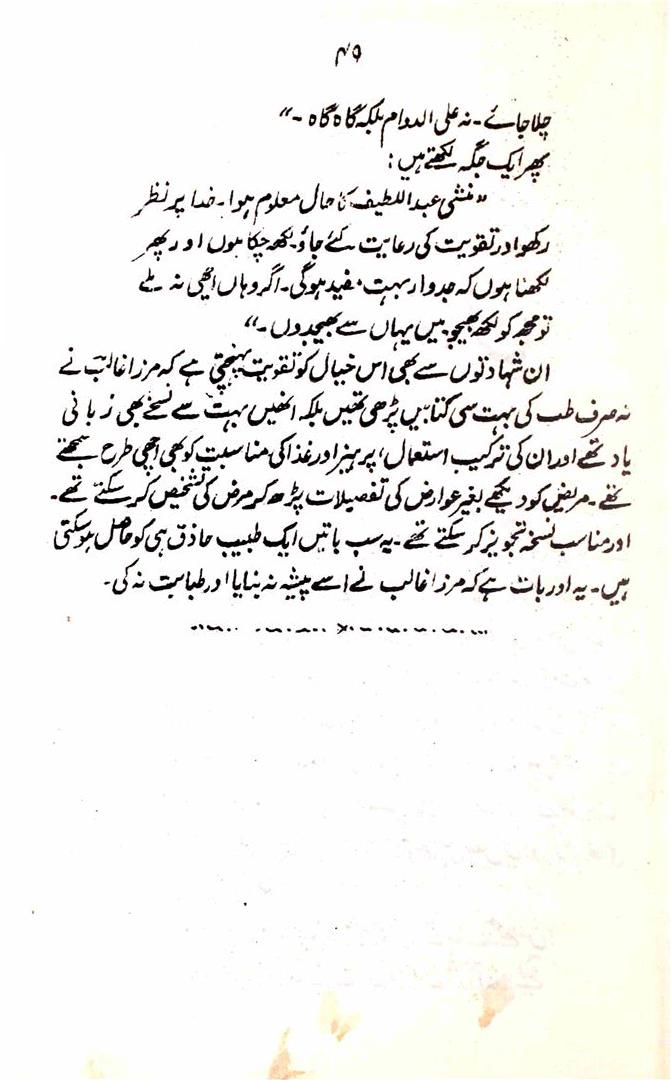 ۴۹
چلا جائے۔ نہ علی الدوام بلکہ گاہ گاہ ۔"
پھر ایک جگہ لکھتے ہیں :
"منشی عبد اللطیف کا حال معلوم ہوا۔ خدا پر نظر
رکھو اور تقویت کی رعایت کئے جاؤ۔ لکھ چکا ہوں اور پھر
لکھتا ہوں کہ جدوار بہت مفید ہوگی۔ اگر وہاں اچھی نہ ملے
تو مجھ کو لکھ بھیجو میں یہاں سے بھیجدوں ۔"
ان شہادتوں سے بھی اس خیال کو تقویت پہنچتی ہے کہ مرزا غالب نے
نہ صرف طب کی بہت سی کتابیں پڑھی تھیں بلکہ انھیں بہت سے نسخے بھی زبانی
یاد تھے اور ان کی ترکیب استعمال، پرہیز اور غذا کی مناسبت کو بھی اچھی طرح سمجھتے
تھے۔ مریض کو دیکھے بغیر عوارض کی تفصیلات پڑھ کر مرض کی تشخیص کر سکتے تھے۔
اور مناسب نسخہ تجویز کر سکتے تھے۔ یہ سب باتیں ایک طبیب حاذق ہی کو حاصل ہو سکتی
ہیں۔ یہ اور بات ہے کہ مرزا غالب نے اسے پیشہ نہ بنایا اور طبابت نہ کی۔